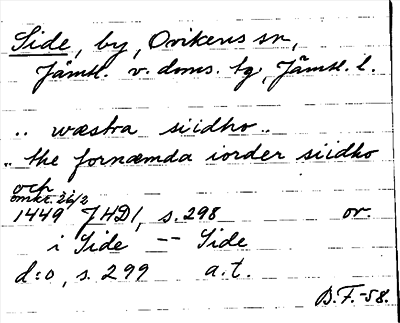 Side, by, Ovikens sn,
Jämtl. v. doms. tg, Jämtl. l.
.. wæstra siidho ..
.. the fornæmda iorder siidho
och
omkr. 26/3
1449 JHD1, s. 298 or.
i Side -- Side
d:o, s. 299 a.t.
B.F.-58.